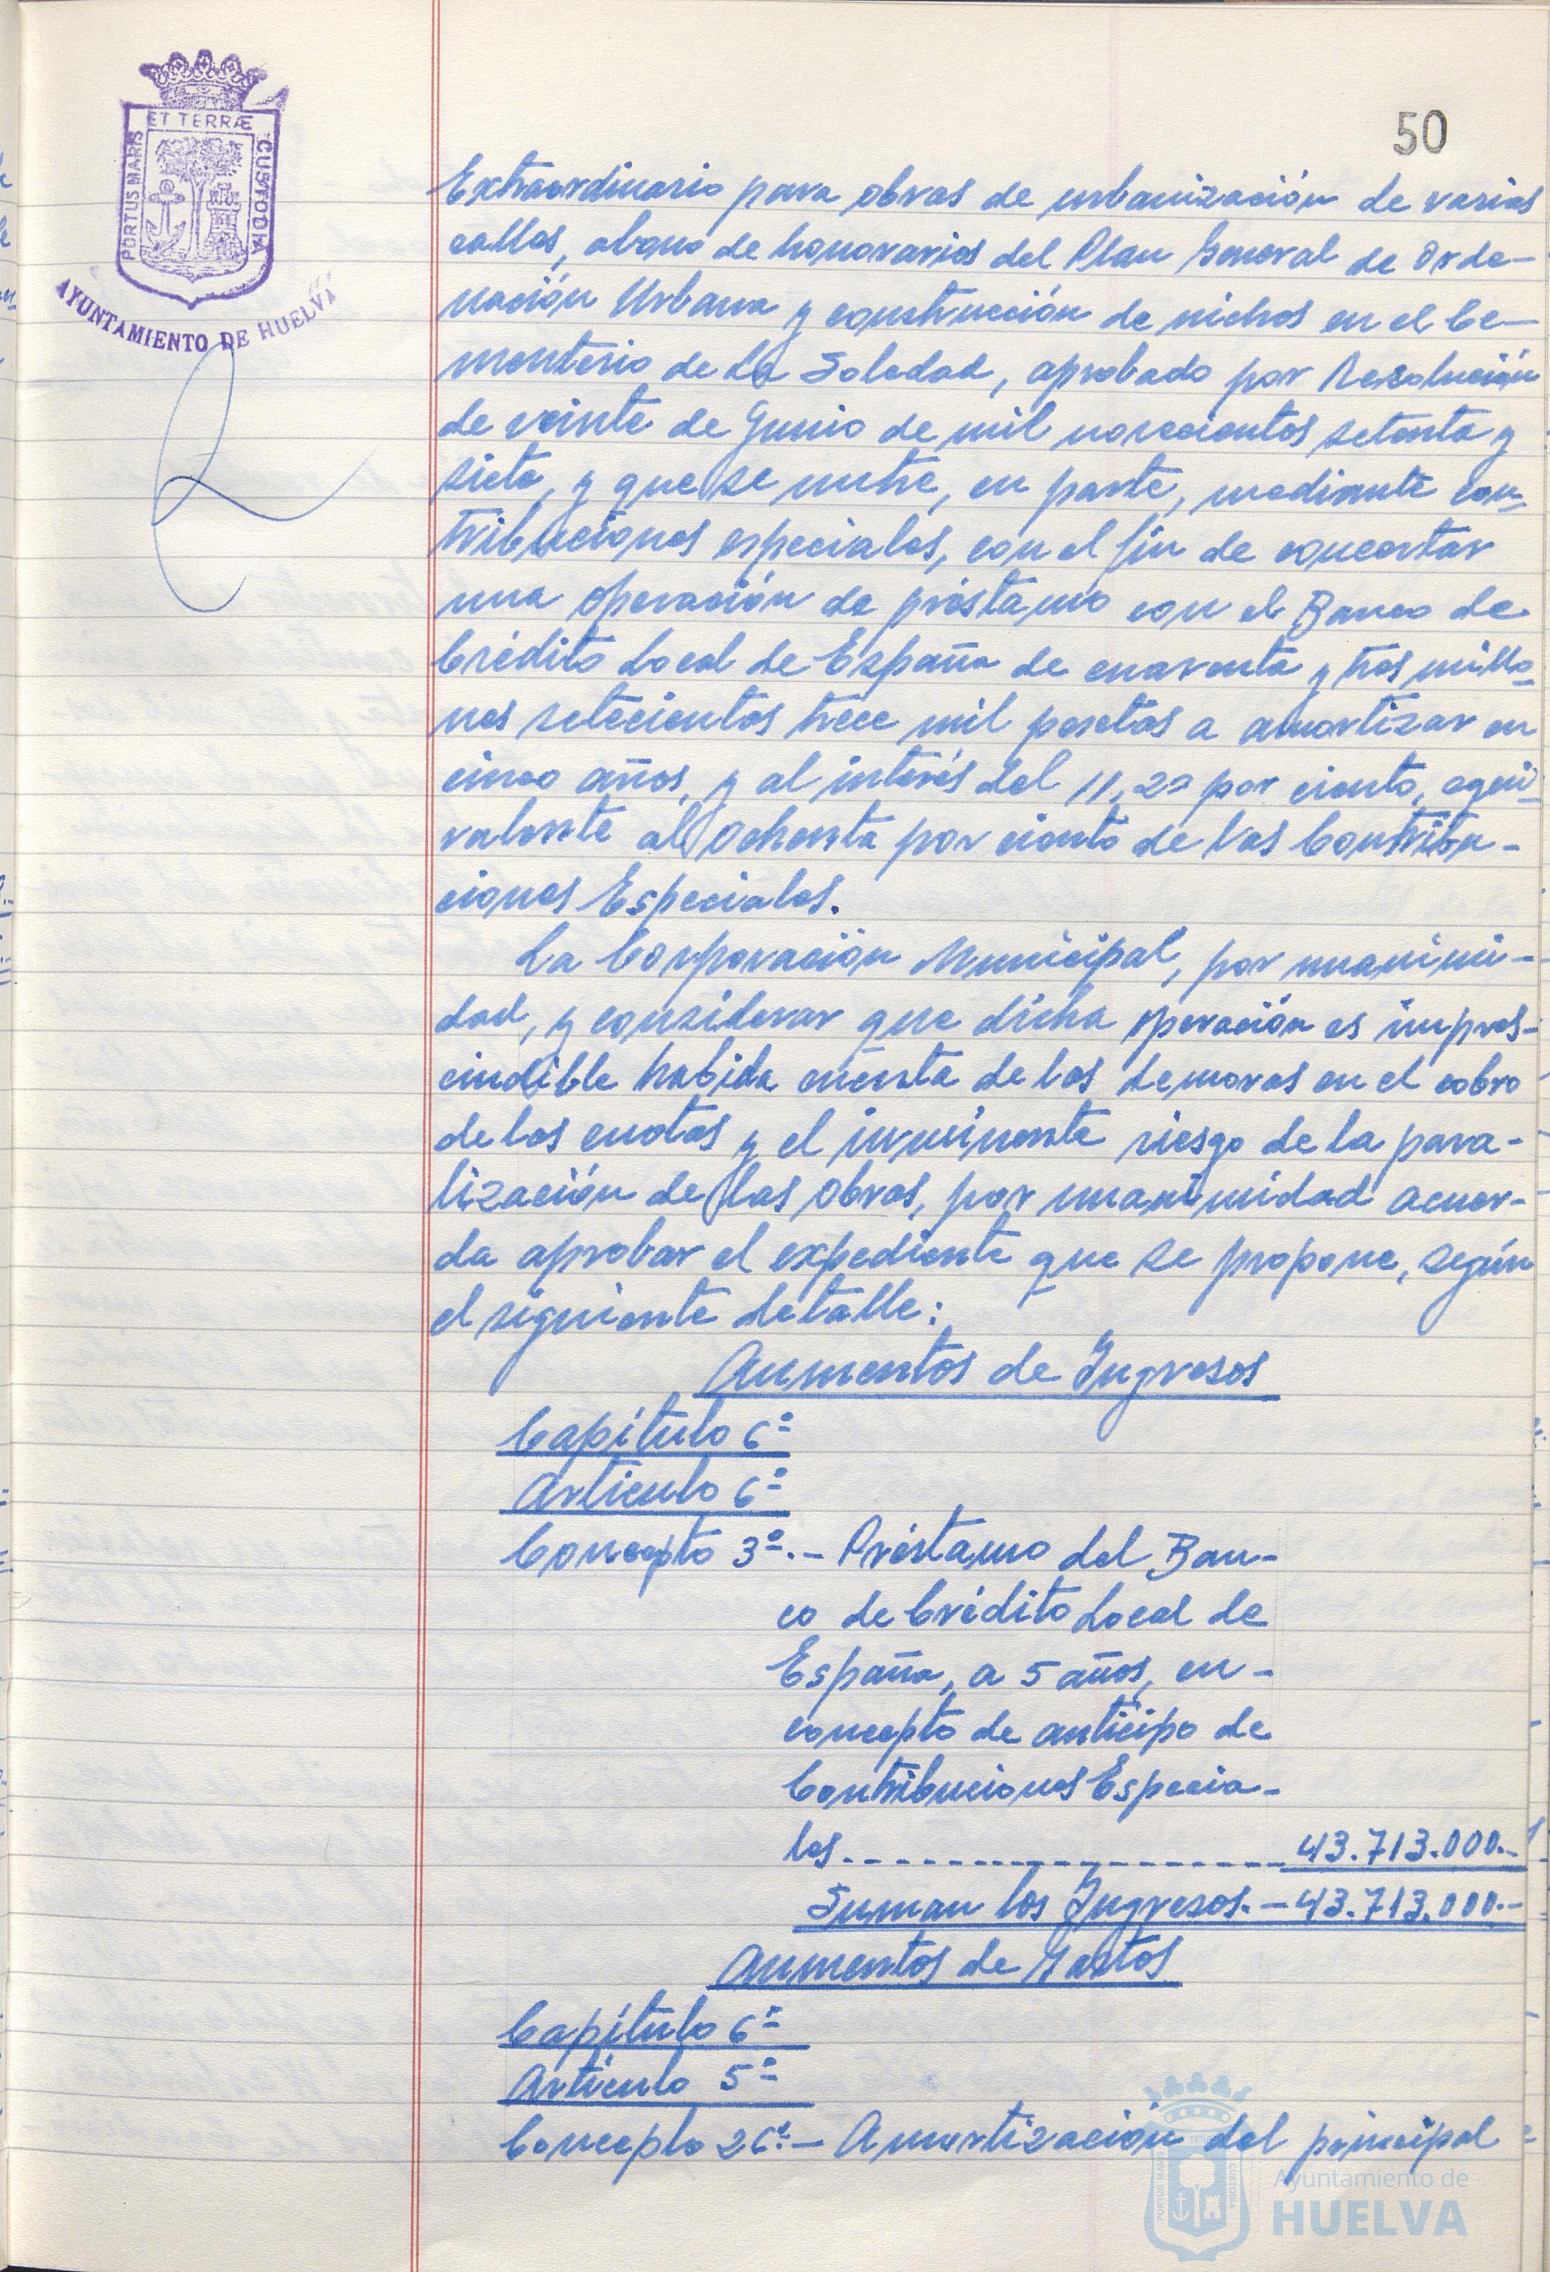 50
PORTUS MARIS ET TERRÆ CUSTODIA
AYUNTAMIENTO DE HUELVA
Extraordinario para obras de urbanización de varias
calles, abono de honorarios del Plan General de Orde-
nación Urbana y construcción de nichos en el Ce-
menterio de La Soledad, aprobado por Resolución
de veinte de Junio de mil novecientos setenta y
siete, y que se nutre, en parte, mediante con-
tribuciones especiales, con el fin de concertar
una operación de préstamo con el Banco de
Crédito Local de España de cuarenta y tres millo-
nes setecientas trece mil pesetas a amortizar en
cinco años, y al interés del 11,20 por ciento, equi-
valente al ochenta por ciento de las Contribu-
ciones Especiales.
La Corporación Municipal, por unanimi-
dad, y considerar que dicha operación es impres-
cindible habida cuenta de las demoras en el cobro
de las cuotas y el inminente riesgo de la para-
lización de las obras, por unanimidad acuer-
da aprobar el expediente que se propone, según
el siguiente detalle:
Aumentos de Ingresos
Capítulo 6º
Artículo 6º
Concepto 3º.- Préstamo del Ban-
co de Crédito Local de
España, a 5 años, en-
concepto de anticipo de
Contribuciones Especia-
les.------------------ 43.713.000.-
Suman los Ingresos.- 43.713.000.-
Aumentos de Gastos
Capítulo 6º
Artículo 5º
Concepto 26º.- Amortización del principal
Ayuntamiento de
HUELVA